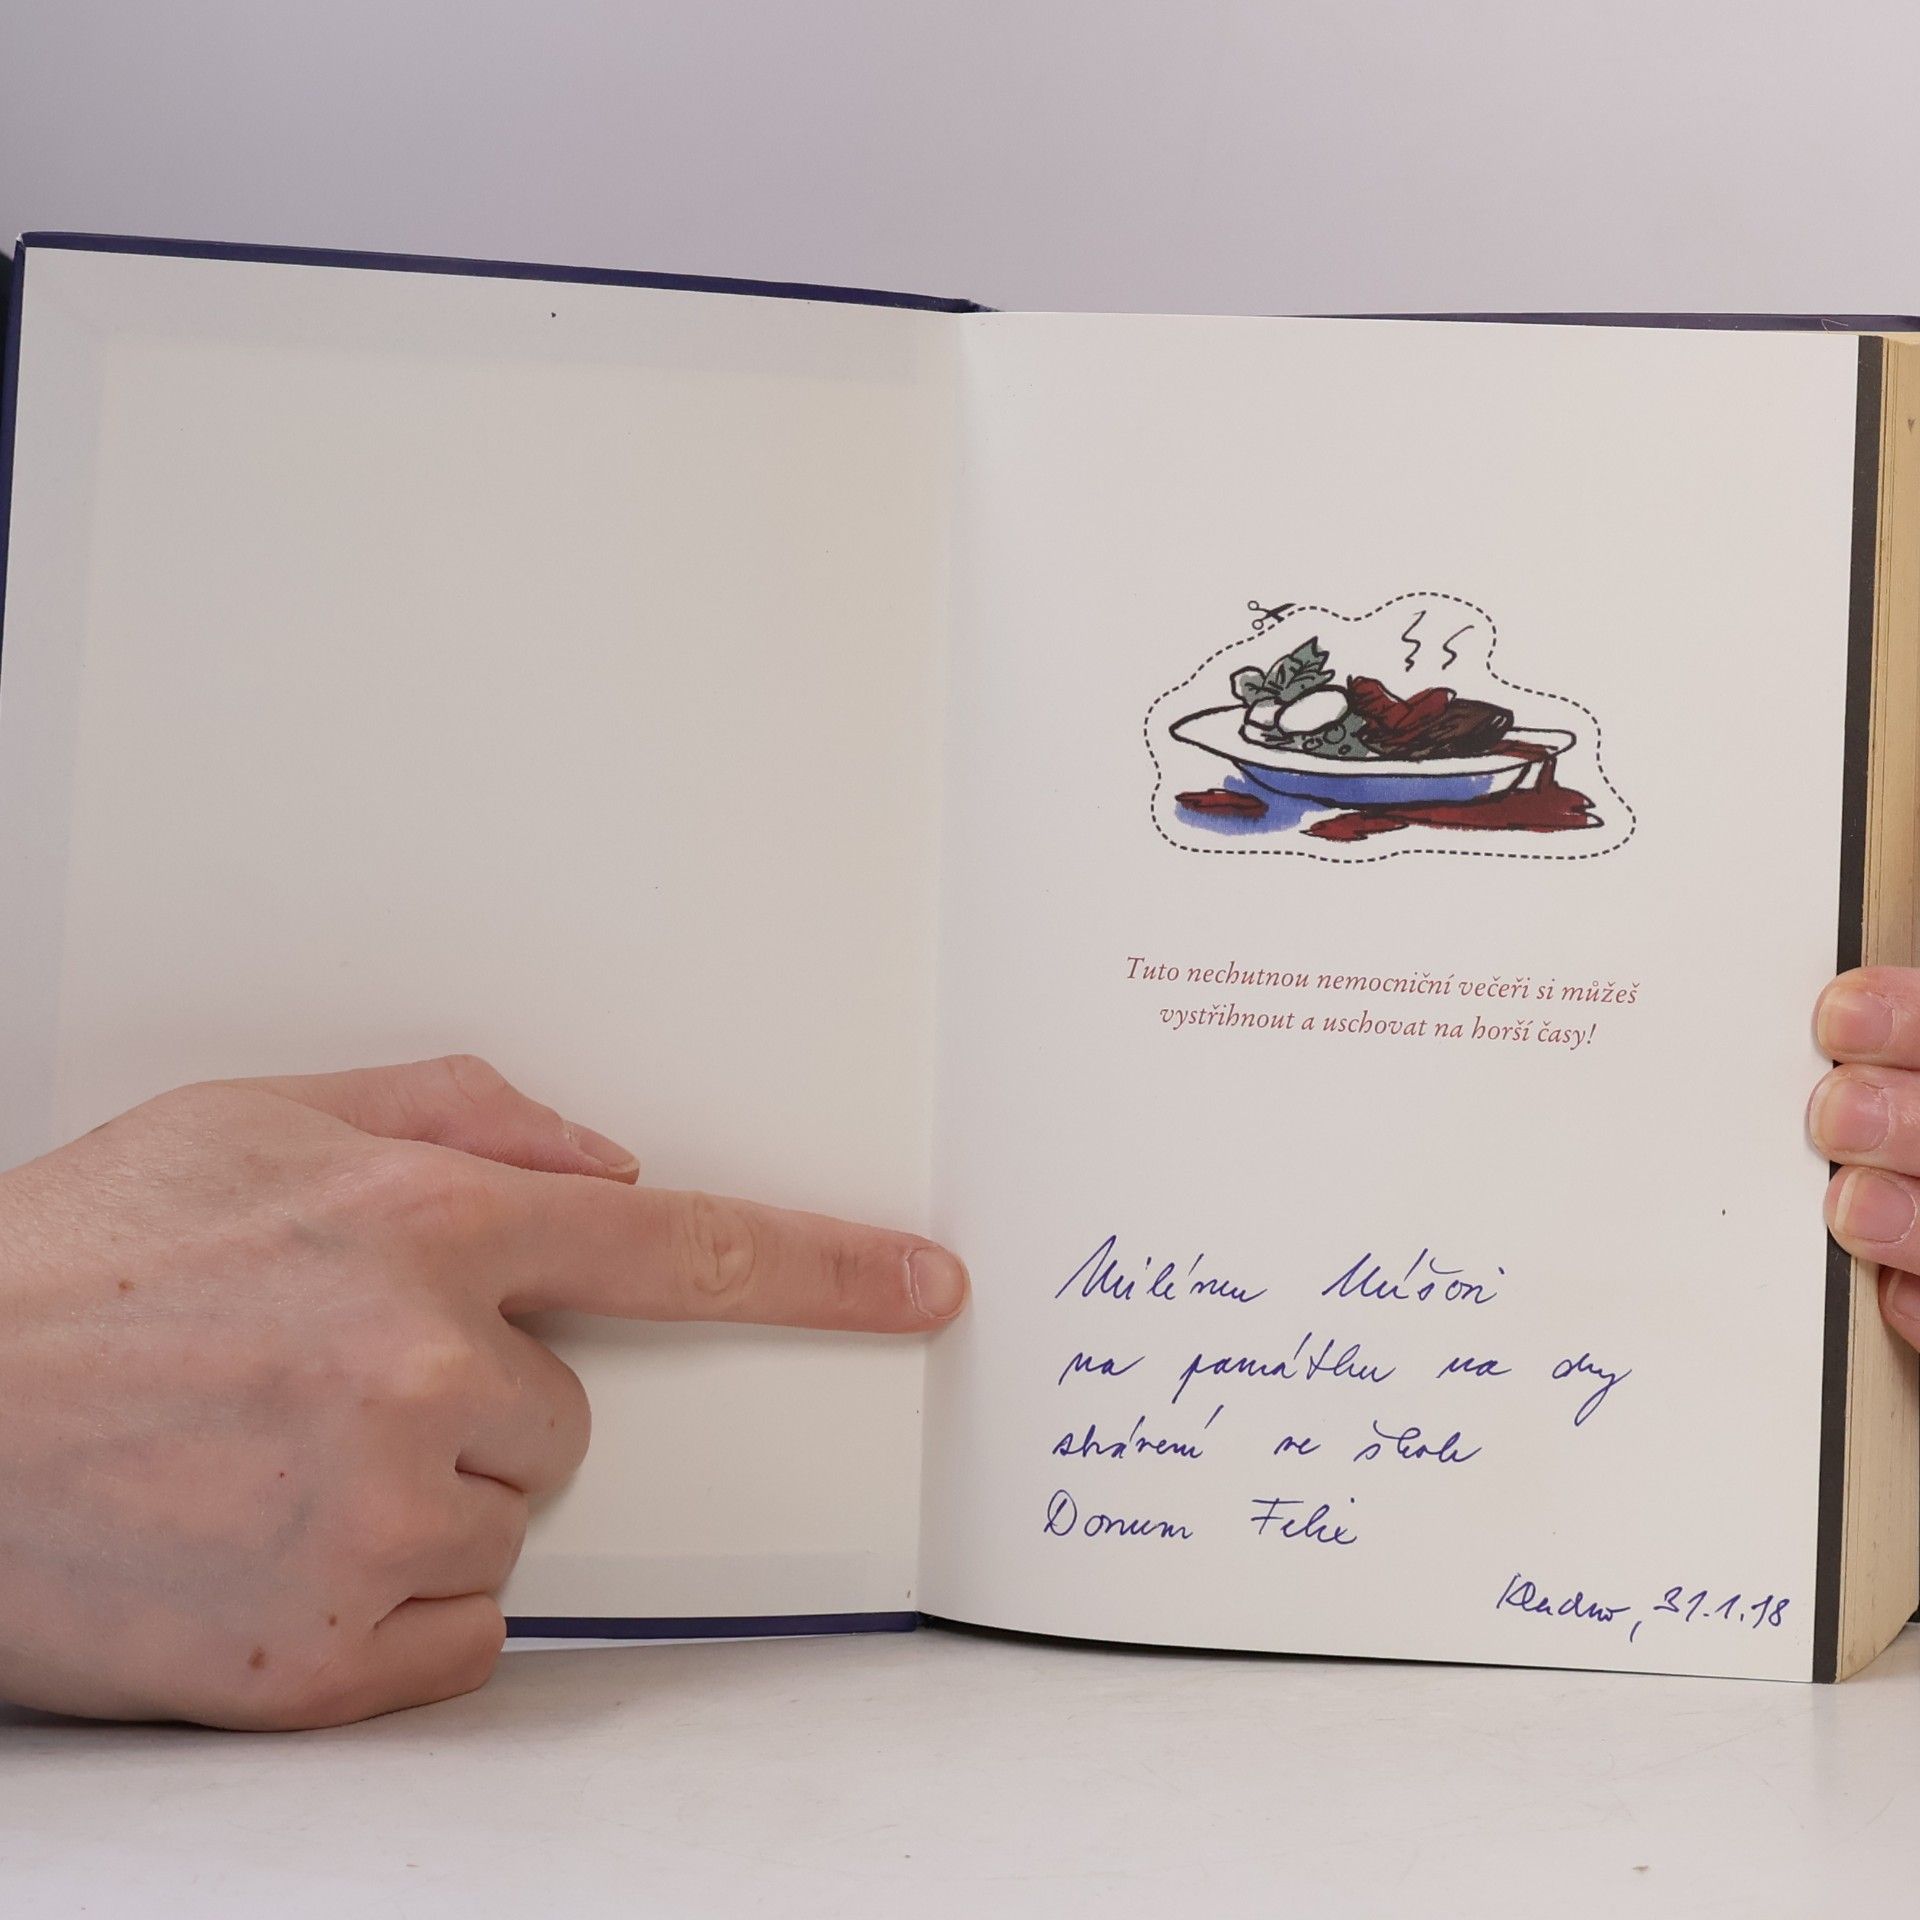 Tuto nechutnou nemocniční večeři si můžeš
vystřihnout a uschovat na horší časy!
Milému Míšovi
na památku na dny
strávené ve škole
Donum Felix
Kladno, 31.1.18